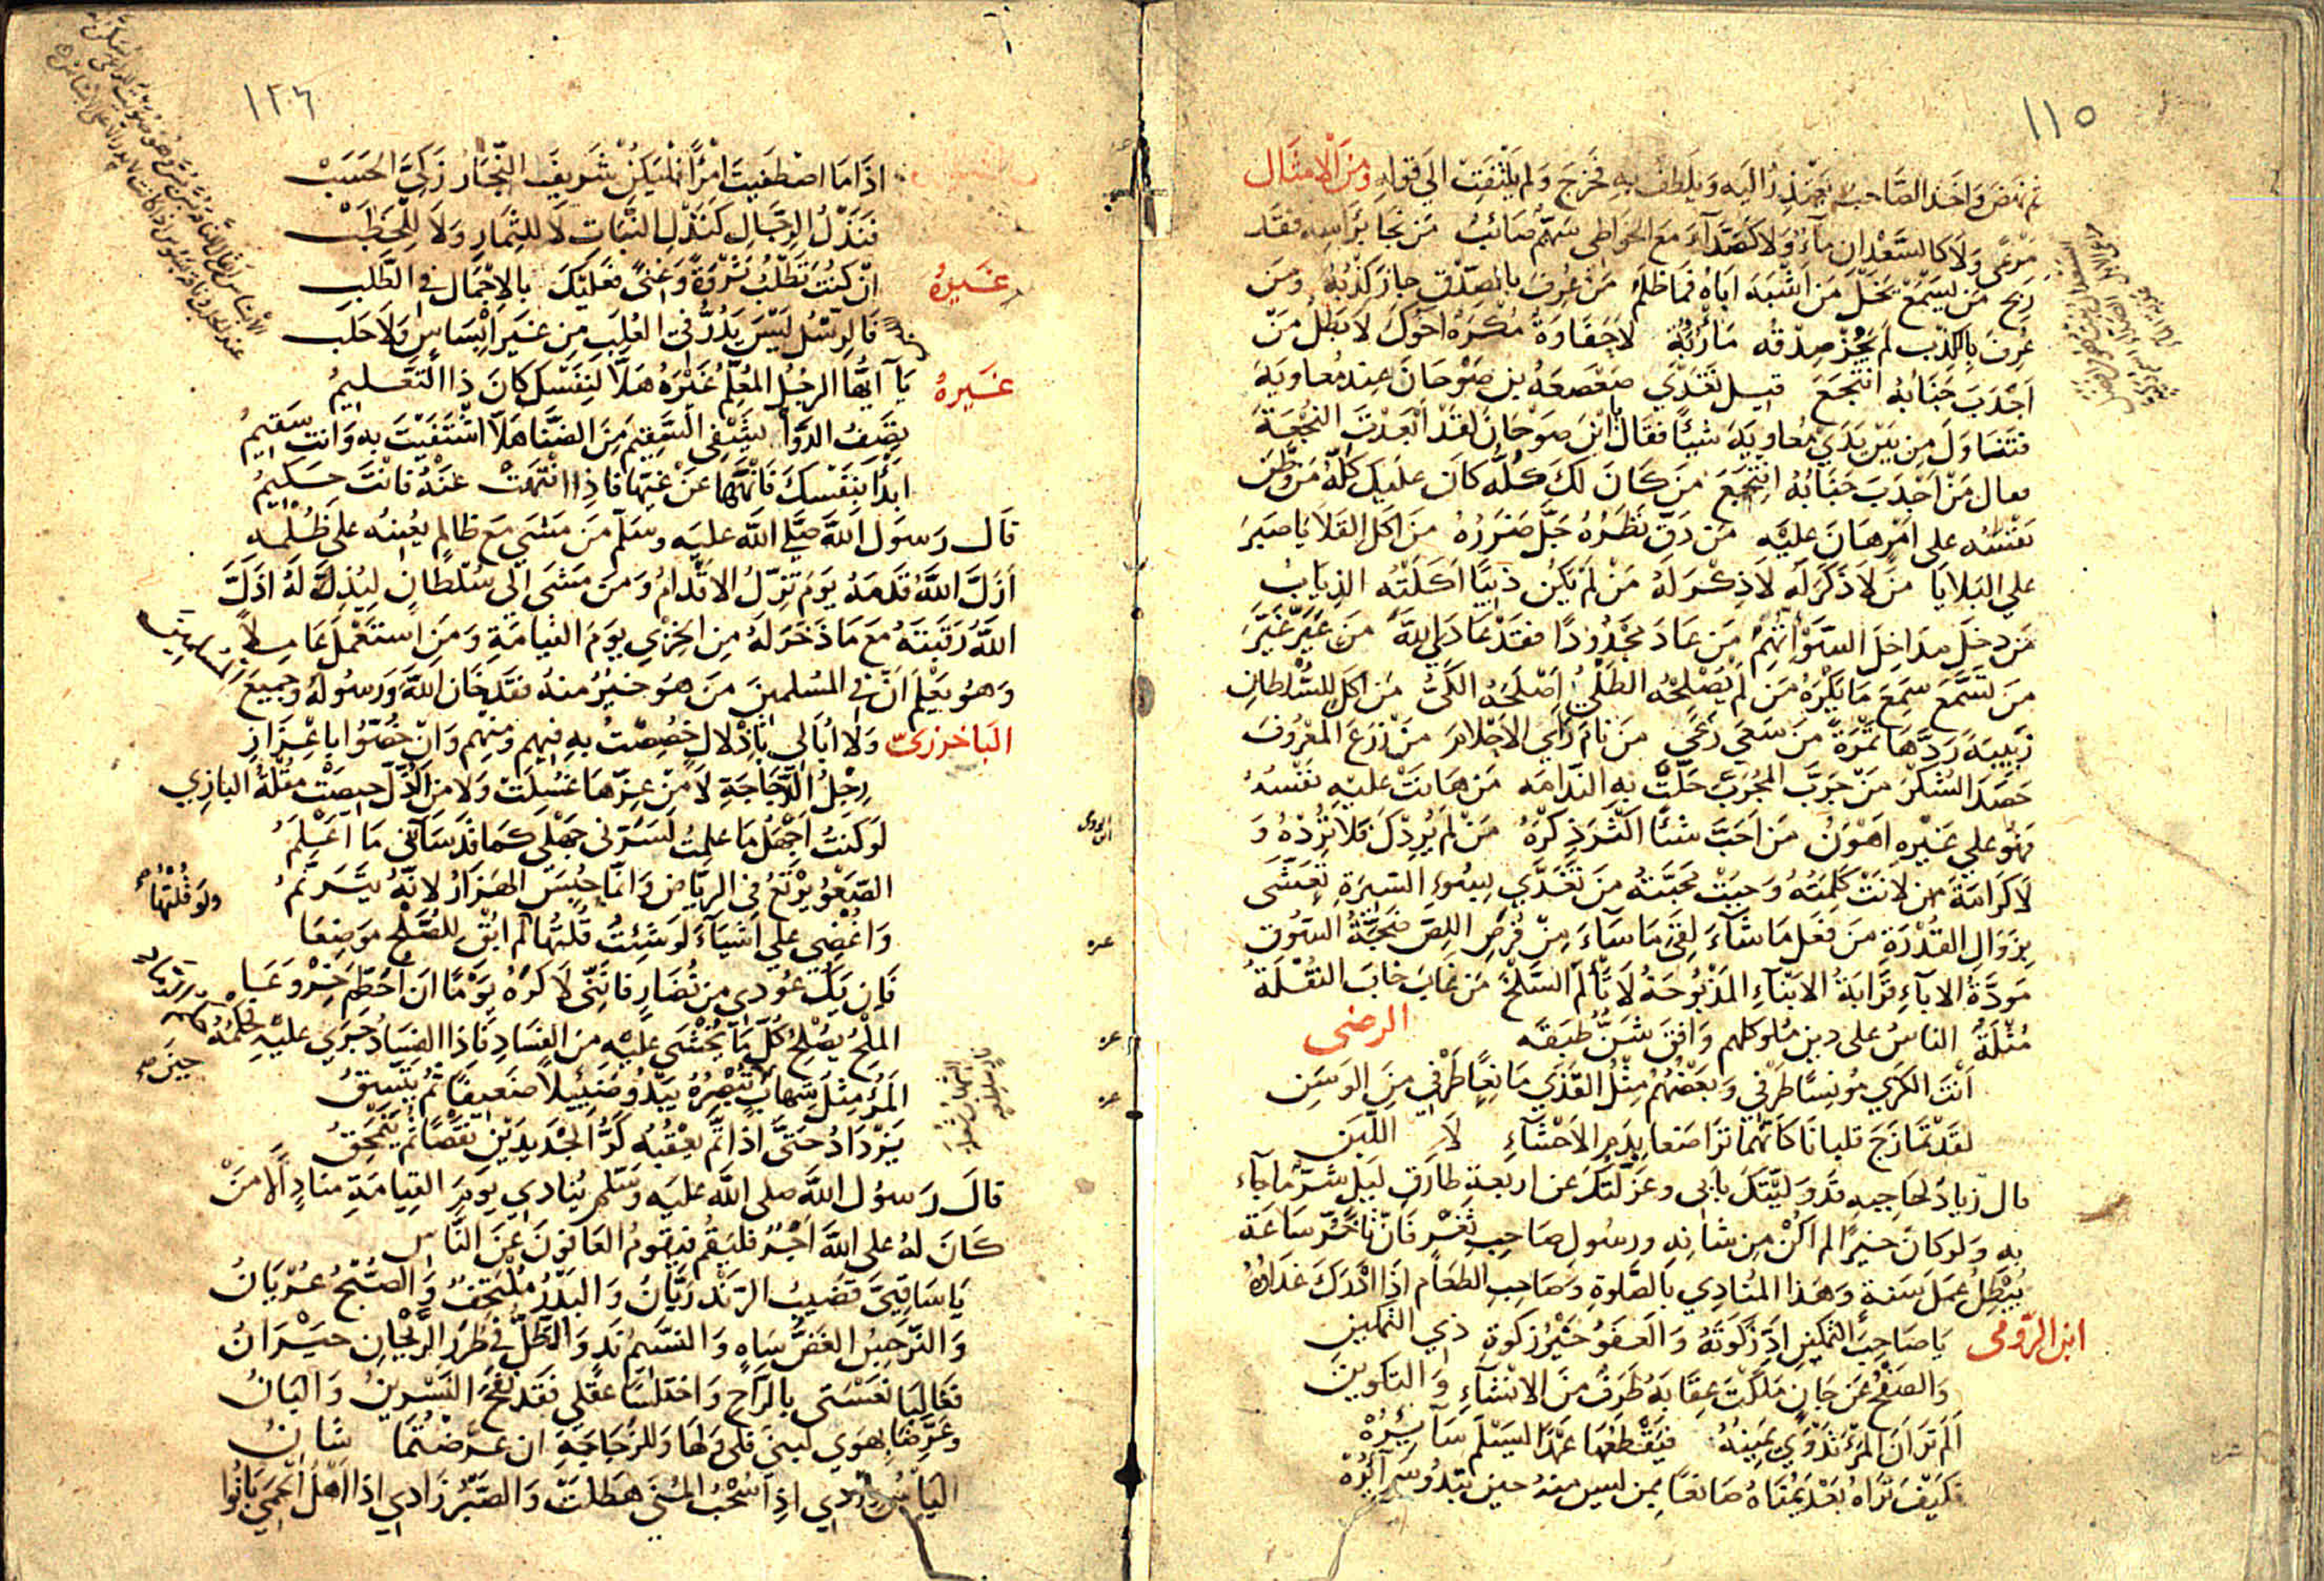 ١١٥
ثم نهض واخذ الصّاحب يعتذر اليه ويلطف به فخرج ولم يلتفت الى قوله ومن الامثال
مرعى ولا كالسعدان مآء ولا كصدّآء مع الخواطى سهم صائب من نجا براسه فقد
ربح من يسمع يخل من اشبه اباه فما ظلم من عرف بالصدق جاز كذبه ومن
عرف بالكذب لم يجز صدقه مأربة لا حفاوة مكره اخوك لا بطل من
اجدب جنابه انتجع قيل تغدّي صعصعة بن صوحان عند معاوية
فتناول من بين يدي معاوية شيئًا فقال ابن صوحان لقد ابعدت النجعة
فقال من اجدب جنابه انتجع من كان لك كله كان عليك كلّه من وطن
نفسه على امر هان عليه من دق نظره جل ضرره من اكل القلايا صبر
على البلايا من لا ذكر له لا ذكر له من لم يكن ذئبًا اكلته الذياب
من دخل مداخل السوء اتهم من عاد مجدودًا فقد عادى الله من عيّر عيّر
من تسمّع سمع ما يكره من لم يصلحه الطلي اصلحه الكيّ من اكل للسّلطان
زبيبة ردّها تمرة من سعى رعى من نام رأي الاحلام من زرع المعروف
حصد الشكر من جرّب المجرّب حلّت به الندامه من هانت عليه نفسه
فهو على غيره اهون من احبّ شئًا اكثر ذكره من لم يردك فلا ترده و
لا كرامة من لانت كلمته وجبت محبّته من تغدّي بسوء السيرة تعشّى
بزوال القدرة من فعل ما شآء لقى ما سآء من فرص اللصّ ضجّة السوق
مودّة الابآء قرابة الابنآء المذبوحة لا تألم السلخ من غاب خاب النقلة
مثلة الناس على دين ملوكهم وافق شنّ طبقه الرضى
انت الكرى مونسًا طرفي وبعضهم مثل القذى مانعًا طرفي من الوسن
لقد تمازج قلبانا كانّهما تراضعا بدم الاحشآء لا اللبن
قال زياد لحاجبه قد وليتك بابى وعزلتك عن اربعة طارق ليل شرّ ما جآء
به ولو كان خيرًا لم اكن من شانه ورسول صاحب ثغر فان تأخّر ساعة
يبطل عمل سنة وهذا المنادي بالصلوة وصاحب الطعام اذا ادرك غداؤه
ابن الرّومى يا صاحب التمكين ادّ زكوته والعفو خير زكوة ذي التمكين
والصفح عن جان ملكت عقابه طرف من الانشآء والتكوين
الم تر ان المرء تدوى يمينه فيقطعها عمدًا ليسلم سآئره
فكيف تراه بعد يمناه صانعًا بمن ليس منه حين تبدو سرآئره
١٢٦
اذا ما اصطفيت امرأً فليكن شريف النّجار زكيّ الحسب
فنذل الرجال كنذل النبات لا للثمار ولا للحطب
غيره ان كنت تطلب ثروة وغنى فعليك بالاجمال في الطلب
فالرسل ليس يدرّ في العلب من غير ابساس ولا حلب
غيره يآ ايّها الرجل المعلّم غيره هلاّ لنفسك كان ذا التعليم
يصف الدوآ ليشفى السقيم من الضنا هلاّ اشتفيت به وانت سقيم
ابدأ بنفسك فانهها عن غيّها فاذا انتهت عنه فانت حكيم
قال رسول الله صلى الله عليه وسلم من مشي مع ظالم يعينه على ظلمه
ازلّ الله قدمه يوم تزلّ الاقدام ومن مشى الى سلطان ليذلّ له اذلّ
الله رقبته مع ما ذخر له من الخزي يوم القيامة ومن استعمل عاملاً
وهو يعلم انّ في المسلمين من هو خير منه فقد خان الله ورسوله وجميع المسلمين
الباخرزىّ ولا ابالى باذلال خصصت به فيهم ومنهم وان خصّوا باعزاز
رجل الدجاجة لا من عزّها غسلت ولا من الذلّ حيصت مقلة البازي
لو كنت اجهل ما علمت لسرّنى جهلى كما قد سآءنى ما اعلم
الصعو يرتع في الرياض وانما حبس الهزار لانّه يترنّم
واغضى على اشيآء لو شئت قلتها ولو قلتها لم ابق للصلح موضعا
فان يك عودي من نضار فاننى لاكره يومًا ان احطّم خروعا
الملح يصلح كلّ ما يخشى عليه من الفساد فاذا الفساد جرى عليه فحكمه
المرء مثل شهاب تبصره يبدو ضئيلاً ضعيفًا ثم يتسق
يزداد حتى اذا تم يعقبه كرّ الجديدين نقصًا ثم يمّحق
قال رسول الله صلى الله عليه وسلم ينادي يوم القيامة مناد الا من
كان له على الله اجر فليقم فيقوم العافون عن النّاس
يا ساقيىّ قضيب الرند ريّان والبدر ملتحف والصبح عريان
والنرجس الغضّ ساه والنسيم ند والطلّ في طرر الريحان حيران
فعالبا نعستى بالراح واختلسا عقلى فقد نفّح النسرين والبان
وعرّضا بهوى لبنى فلى ولها وللزجاجة ان عرّضتما شان
اليأس وردي اذا سحب المنى هطلت والصبر زادي اذا اهل الحمى بانوا